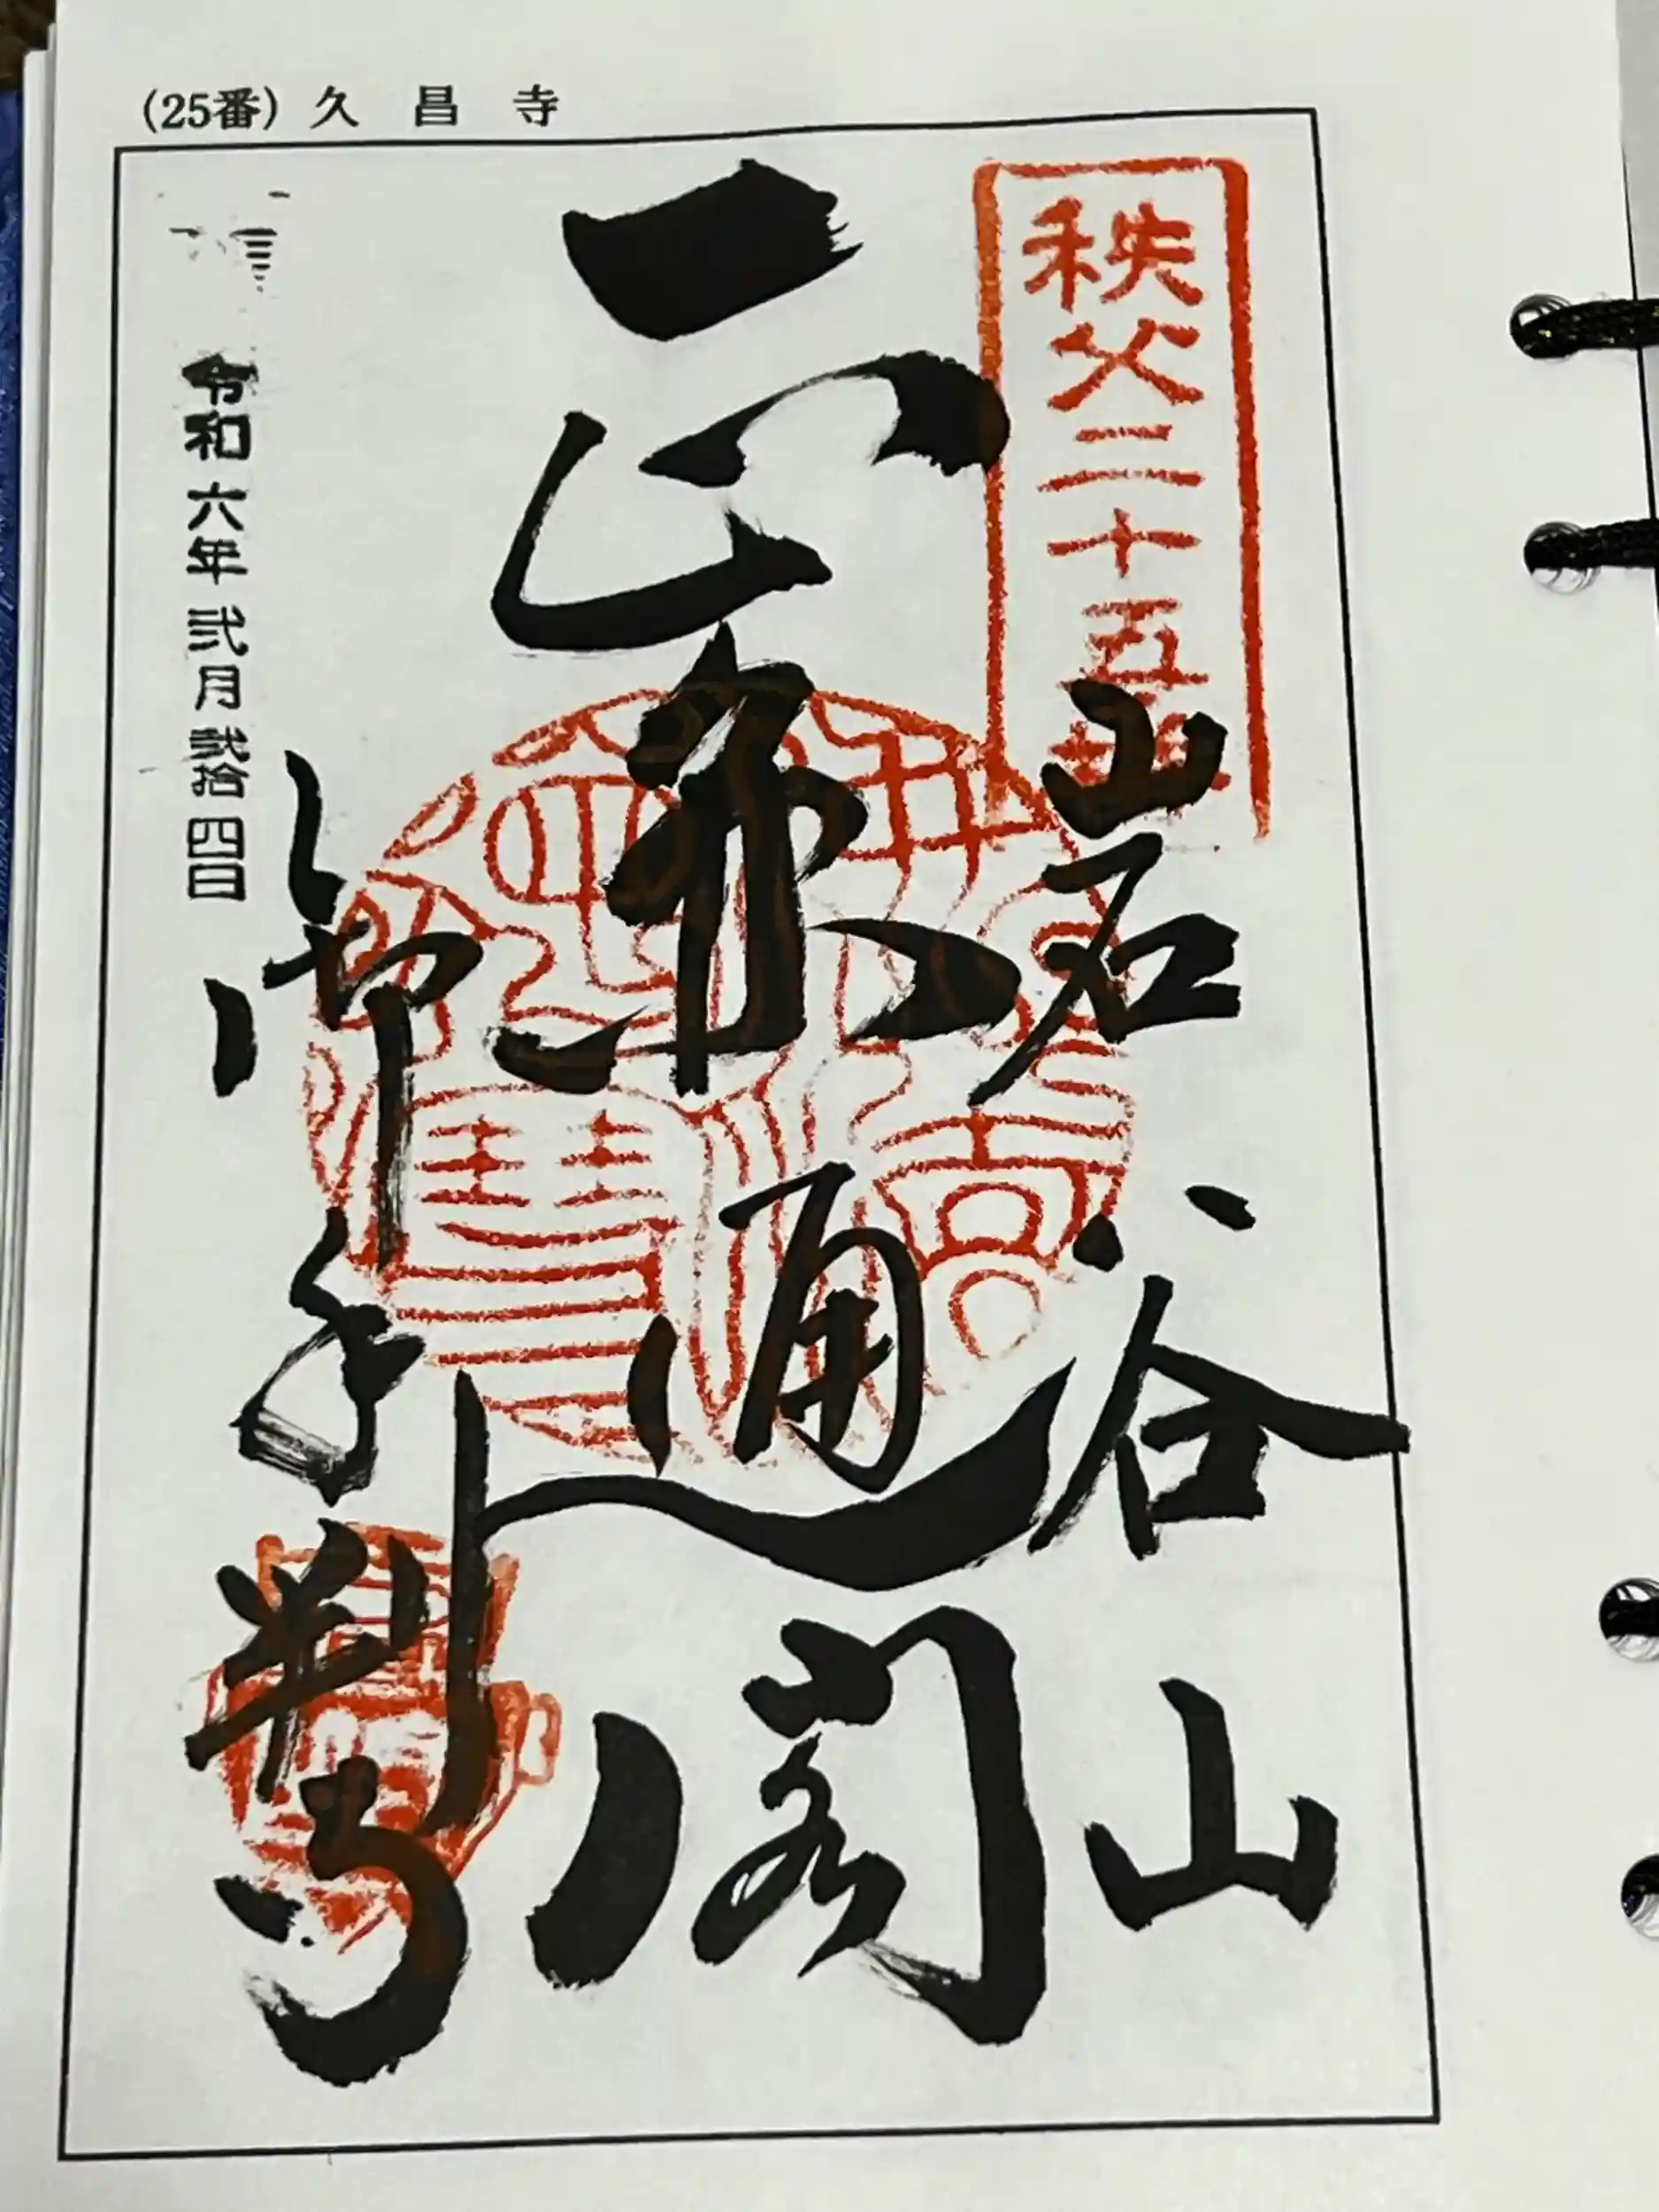 (25番) 久昌寺
秩父二十五番
岩谷山
正布通閣
御手判寺
令和六年弐月弐拾四日